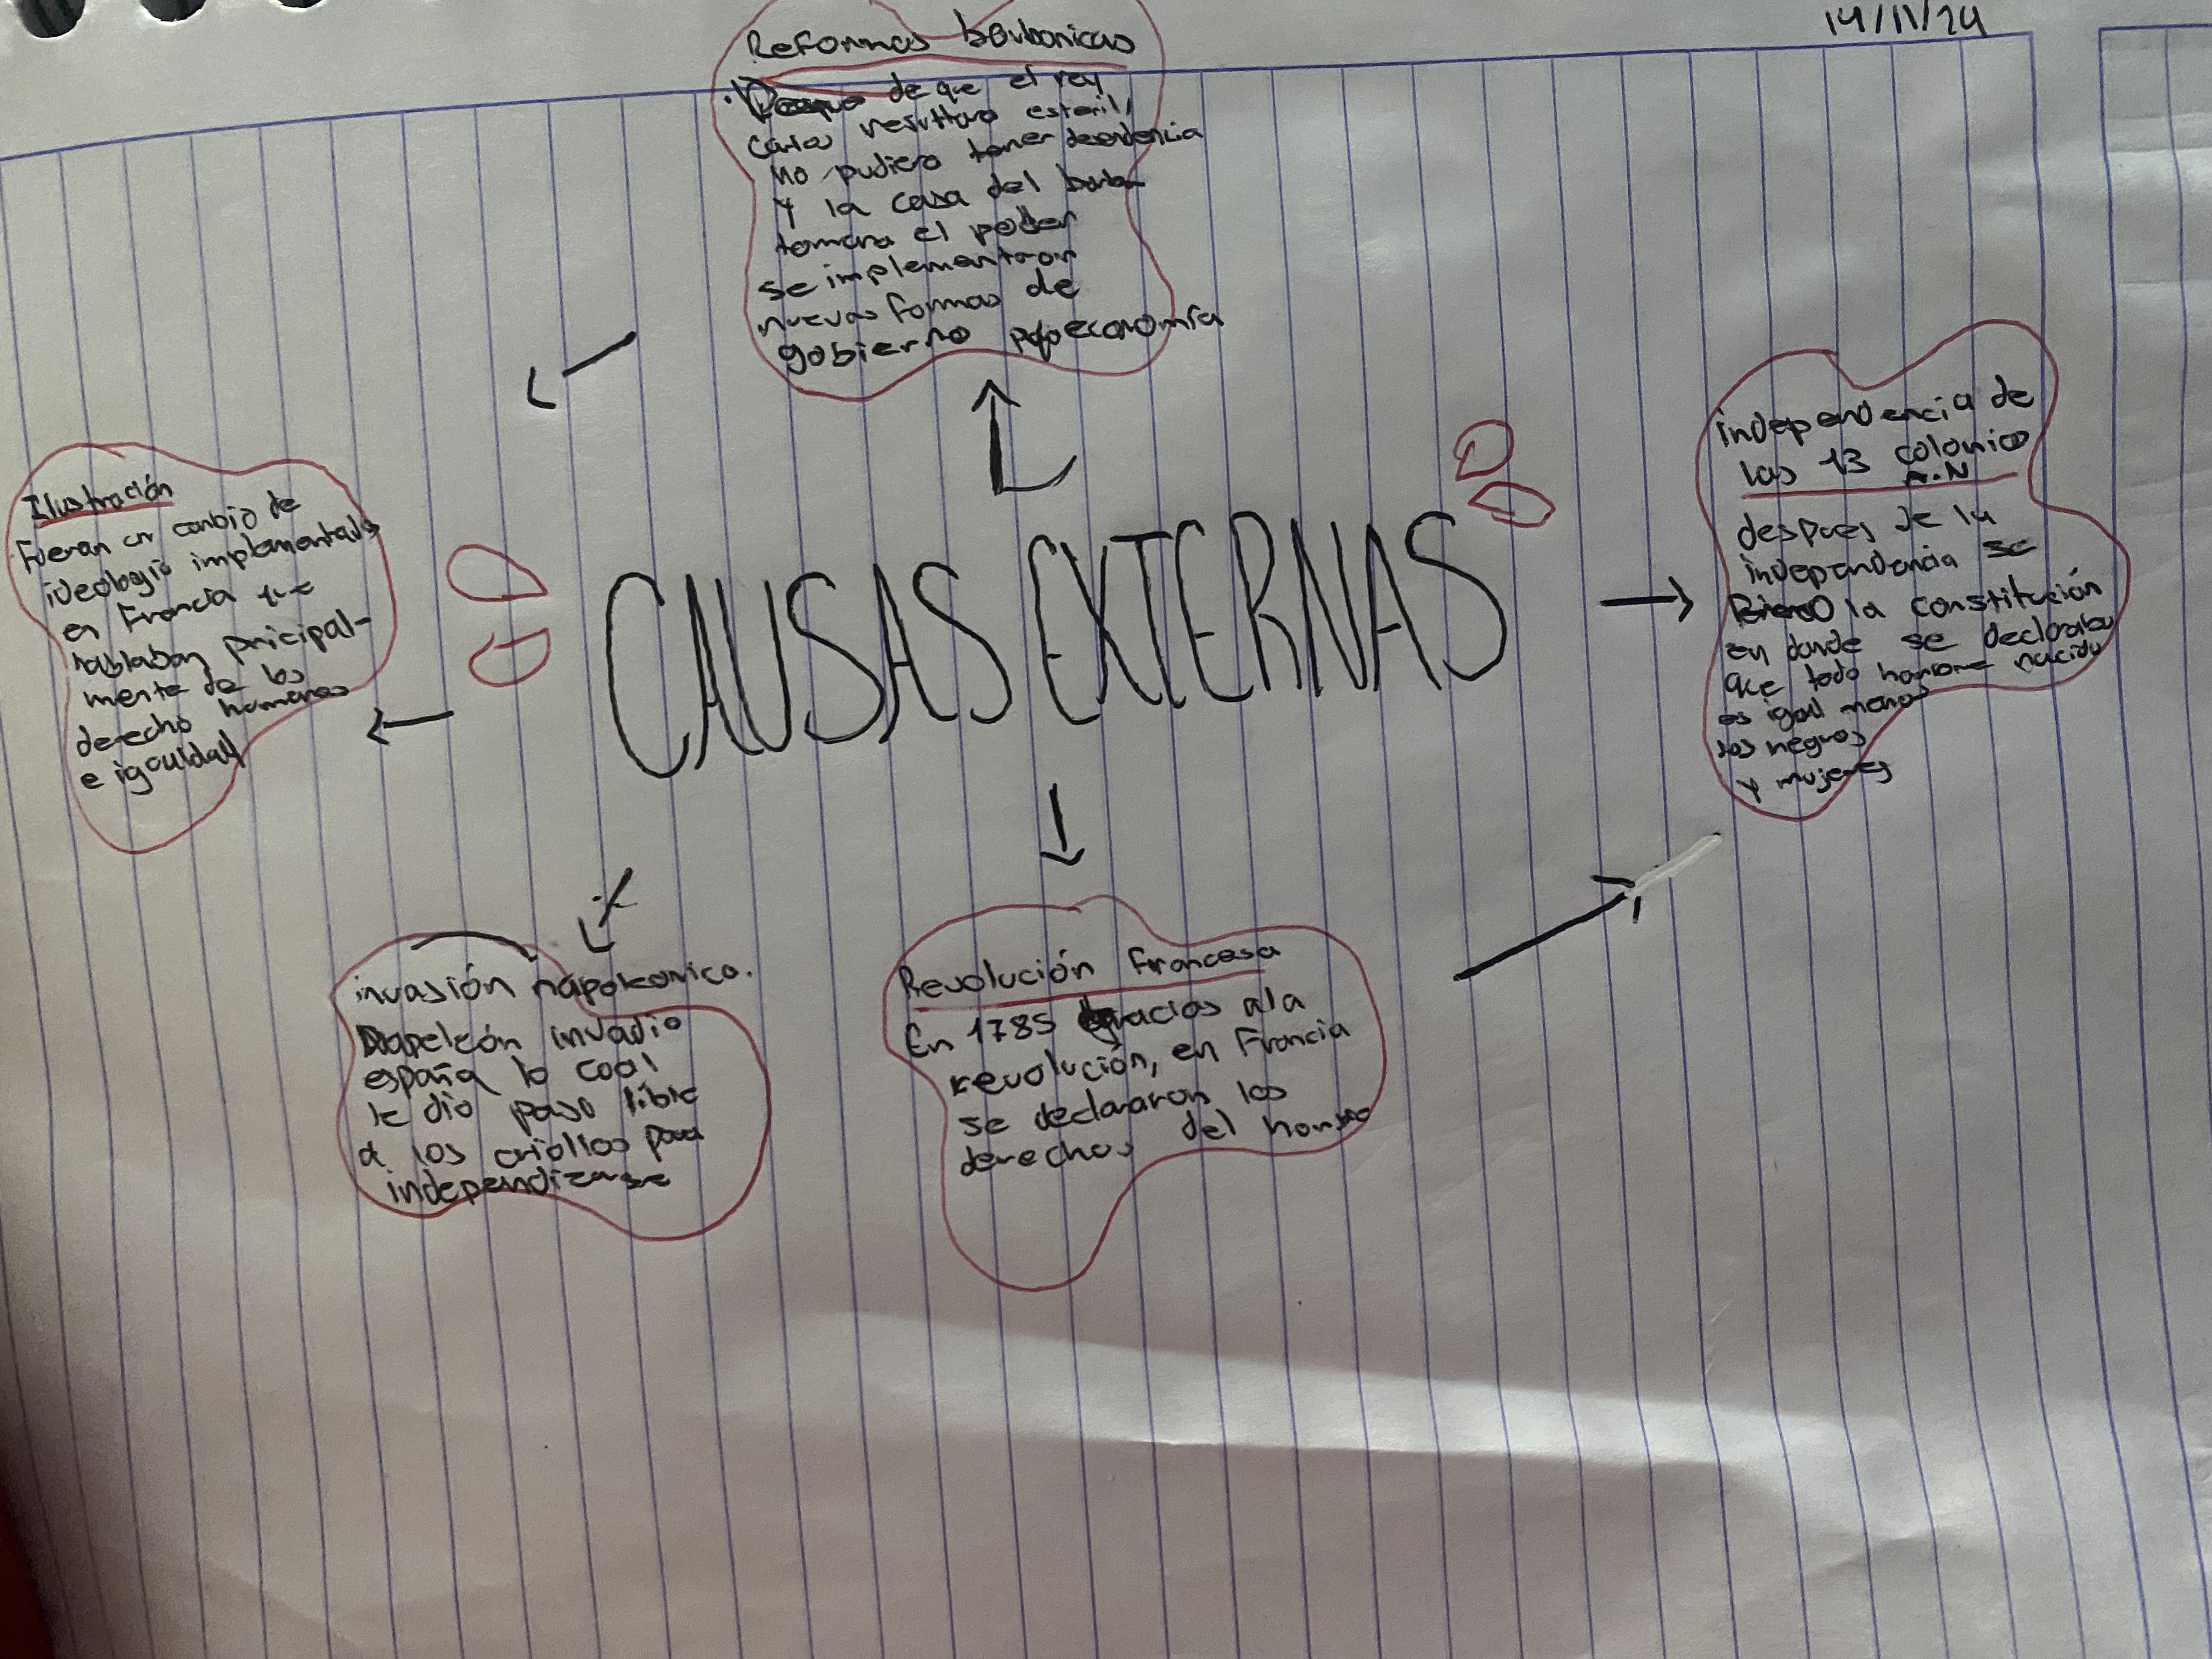 14/11/24
Reformas borbonicas
de que el rey
Carlos resultara esteril,
no pudiera tener desendencia
y la casa del borbon
tomara el poder
se implementaron
nuevas formas de
gobierno economía
independencia de
las 13 colonias
A.N
despues de la
independencia se
la constitución
en donde se declaraba
que todo hombre nacido
es igual menos
los negros
y mujeres
Ilustración
Fueron un canbio de
ideologia implementada
en Francia que
hablaban pricipal-
mente de los
derecho humanos
e igauldad
CAUSAS EXTERNAS
invasión napoleonica.
Napeleón invadio
españa lo cual
le dio paso libre
a los criollos para
independizarse
Revolución francesa
En 1785 gracias ala
revolución, en Francia
se declararon los
derechos del hombre